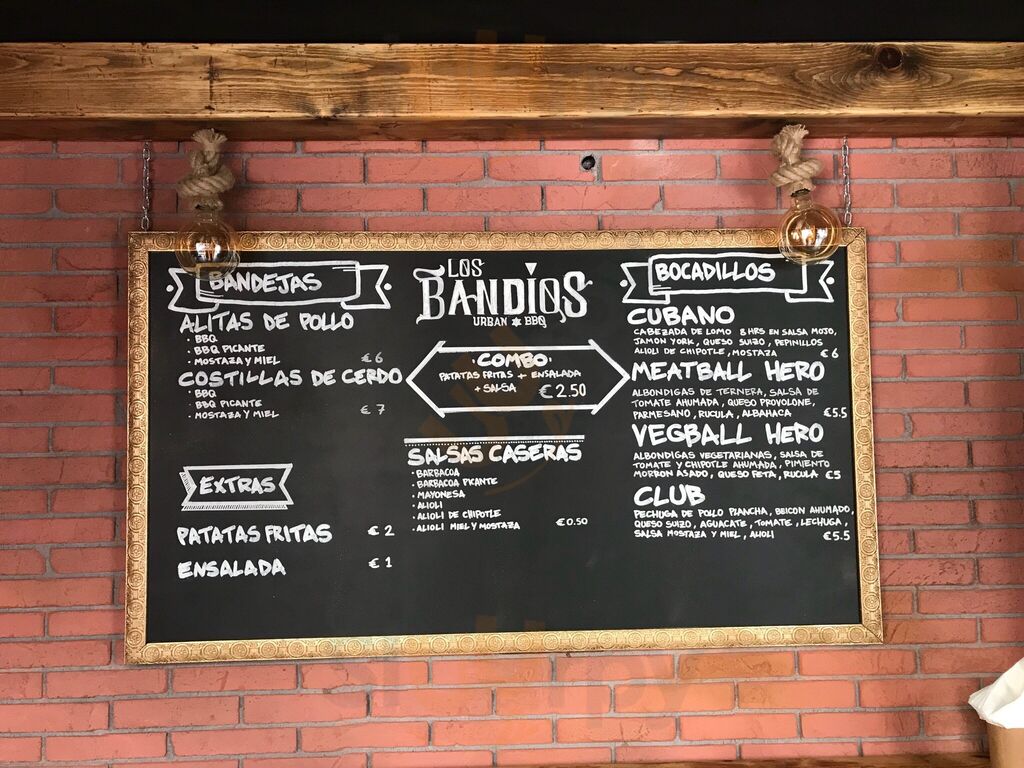 BANDEJAS
ALITAS DE POLLO
· BBQ
· BBQ PICANTE
· MOSTAZA Y MIEL €6
COSTILLAS DE CERDO
· BBQ
BBQ PICANTE
· MOSTAZA Y MIEL €7
EXTRAS
PATATAS FRITAS €2
ENSALADA €1
LOS
BANDIOS
URBAN * BBQ
· COMBO ·
PATATAS FRITAS + ENSALADA
+ SALSA €2.50
SALSAS CASERAS
· BARBACOA
· BARBACOA PICANTE
· MAYONESA
· ALIOLI
· ALIOLI DE CHIPOTLE
· ALIOLI MIEL Y MOSTAZA €0.50
BOCADILLOS
CUBANO
CABEZADA DE LOMO 8 HRS EN SALSA MOJO,
JAMON YORK, QUESO SUIZO, PEPINILLOS
ALIOLI DE CHIPOTLE, MOSTAZA €6
MEATBALL HERO
ALBONDIGAS DE TERNERA, SALSA DE
TOMATE AHUMADA, QUESO PROVOLONE,
PARMESANO, RUCULA, ALBAHACA €5.5
VEGBALL HERO
ALBONDIGAS VEGETARIANAS, SALSA DE
TOMATE Y CHIPOTLE AHUMADA, PIMIENTO
MORRON ASADO, QUESO FETA, RUCULA €5
CLUB
PECHUGA DE POLLO PLANCHA, BEICON AHUMADO,
QUESO SUIZO, AGUACATE, TOMATE, LECHUGA,
SALSA MOSTAZA Y MIEL, ALIOLI €5.5